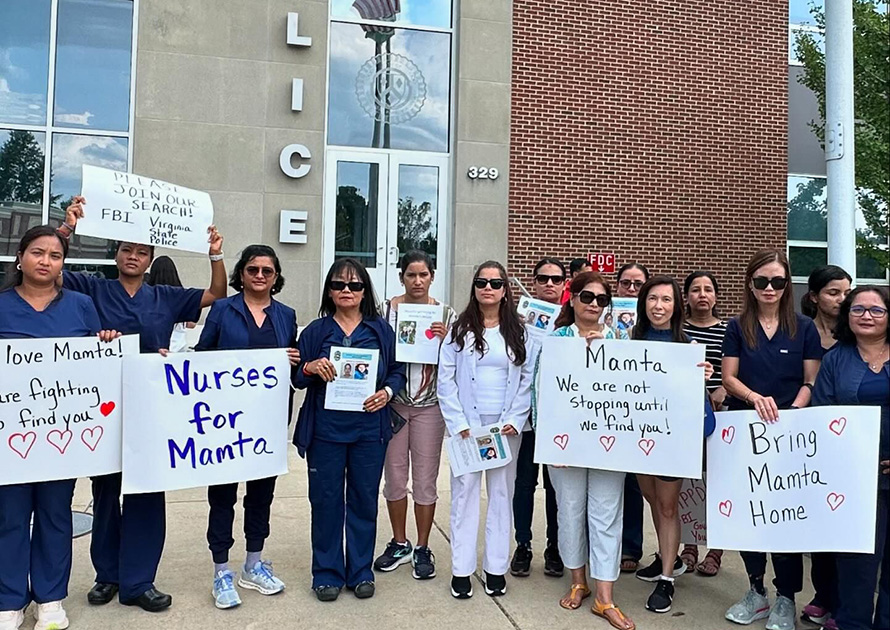 LICE
329
FDC
PLEASE
JOIN OUR
SEARCH!
FBI Virginia
State
Police
love Mamta!
are fighting
to find you
Nurses
for
Mamta
Mamta
We are not
stopping until
we find you!
Bring
Mamta
Home
FBI
You